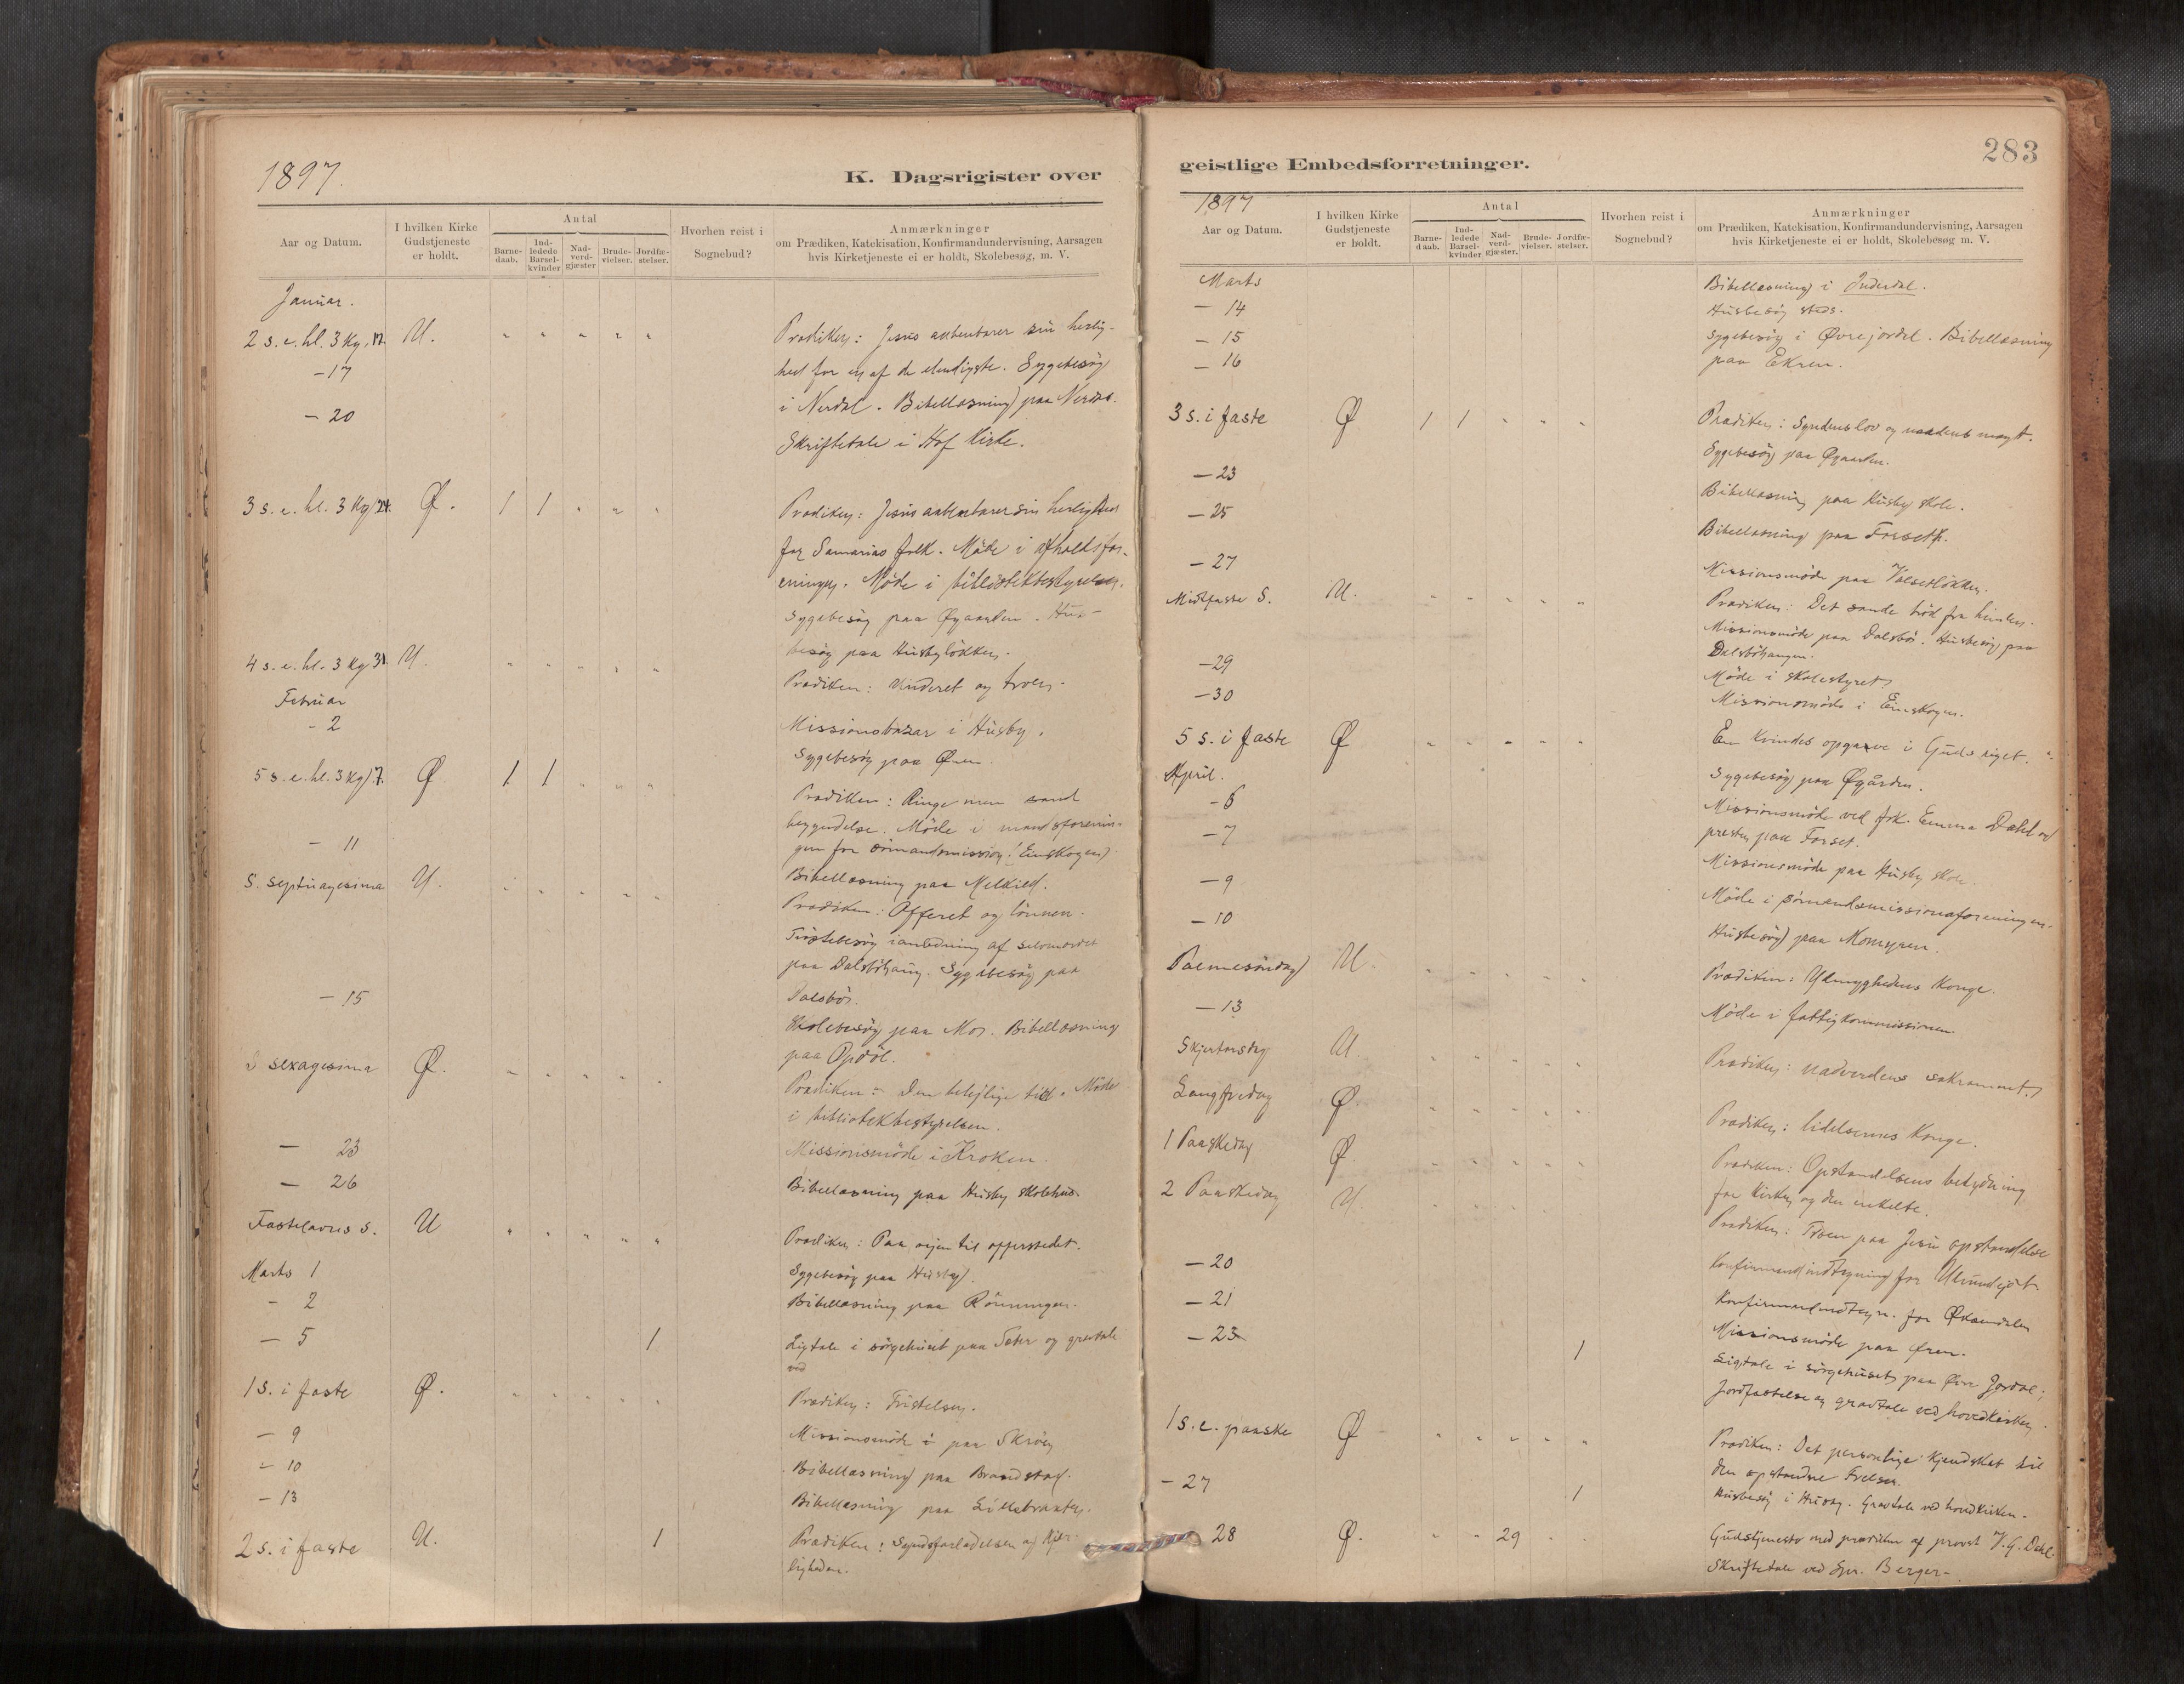 1897.
K. Dagsrigister over
Aar og Datum.
I hvilken Kirke Gudstjeneste er holdt.
Antal
Barne-daab.
Ind-ledede Barsel-kvinder
Nad-verd-gjæster
Brude-vielser.
Jordfæ-stelser.
Hvorhen reist i Sognebud?
Anmærkninger
om Prædiken, Katekisation, Konfirmandundervisning, Aarsagen
hvis Kirketjeneste ei er holdt, Skolebesøg, m. V.
Januar.
2 s. e. hl. 3 kg. 17. U. " " " " " Prædiken: Jesus aabenbarer sin herlig-
-17 hed for en af de elendigste. Sygebesøg
i Nerdal. Bibellæsning paa Nerdal.
- 20 Skriftetale i Hof Kirke.
3 s. e. hl. 3 kg/24. Ø. 1 1 " " " Prædiken: Jesus aabenbarer sin herlighed
for Samarias folk. Møde i afholdsfor-
eningen. Møde i bibliotekbestyrelsen.
Sygebesøg paa Øgaarden. Hus-
besøg paa Husbyløkken.
4 s. e. hl. 3 kg 31. U. " " " " " Prædiken: Underet og troen.
Februar
- 2 Missionsbazar i Husby.
Sygebesøg paa Øren.
5 s. e. hl. 3 kg/7. Ø 1 1 " " " Prædiken: Ringe men sand
begyndelse. Møde i mandsforenin-
gen for sömandsmission (Einskogen)
- 11 Bibellæsning paa Melkild.
S. septuagesima U. " " " " " Prædiken: Offeret og lönnen.
Tröstebesøg i anledning af selvmordet
paa Dalsböhaug. Sygebesøg paa
Dalsbö.
- 15 Skolebesøg paa Mo. Bibellæsning
paa Opdöl.
S sexagesima Ø. " " " " " Prædiken: Den belejlige tid. Møde
i bibliotekbestyrelsen.
- 23 Missionsmöde i Kroken.
- 26 Bibellæsning paa Husby skolehus.
Fastelavns s. U " " " " " Prædiken: Paa vejen til offerstedet.
Marts 1 Sygebesøg paa Husby.
- 2 Bibellæsning paa Rönningen.
- 5 1 Ligtale i sörgehuset paa Sæter og gravtale
ved
1 s. i faste Ø. " " " " " Prædiken: Fristelsen.
- 9 Missionsmöde i paa Skröen
- 10 Bibellæsning paa Brandstad.
- 13 Bibellæsning paa Lillebrauten.
2 s. i faste U. 1 Prædiken: Syndsforladelsen og kjær-
ligheden.
283
geistlige Embedsforretninger.
1897
Aar og Datum.
I hvilken Kirke Gudstjeneste er holdt.
Antal
Barne-daab.
Ind-ledede Barsel-kvinder
Nad-verd-gjæster.
Brude-vielser.
Jordfæ-stelser.
Hvorhen reist i Sognebud?
Anmærkninger
om Prædiken, Katekisation, Konfirmandundervisning, Aarsagen
hvis Kirketjeneste ei er holdt, Skolebesøg m. V.
Marts Bibellæsning i Inderdal.
- 14 Husbesøg steds.
- 15 Sygebesøg i Øvrejordal. Bibellæsning
- 16 paa Ekren.
3 s. i faste Ø 1 1 " " " Prædiken: Syndens lov og naadens magt.
Sygebesøg paa Øgaarden.
- 23 Bibellæsning paa Husby skole.
- 25 Bibellæsning paa Forseth.
- 27 Missionsmöde paa Valsetløkken.
Midfaste S. U. " " " " " Prædiken: Det sande bröd fra himlen.
Missionsmöde paa Dalsbö. Husbesøg paa
Dalsböhaugen.
- 29 Möde i skolestyret
- 30 Missionsmöde i Einskogen.
5 s. i faste Ø " " " " " En kvindes opgave i Guds riget.
April. Sygebesøg paa Øgården.
- 6 Missionsmöde ved frk. Emma Dahl og
- 7 presten paa Forset.
- 9 Missionsmöde paa Husby skole.
- 10 Möde i sömandsmissionsforeningen.
Husbesøg paa Momyren.
Palmesöndag U. " " " " " Prædiken: Ydmyghedens konge.
- 13 Möde i fattigkommissionen.
Skjærtorsdag U. " " " " " Prædiken: nadverdens sakrament.
Langfredag Ø. " " " " " Prædiken: lidelsernes konge.
1 Paaskedag Ø. " " " " " Prædiken: Opstandelsens betydning
for kirken og den enkelte.
2 Paaskedag U. " " " " " Prædiken: Troen paa Jesu opstandelse
- 20 Konfirmandindtegning for Ulvundejet
- 21 Konfirmandindtegn. for Øksendalen
- 23 Missionsmöde paa Øren.
1 Ligtale i sörgehuset paa Øvre Jordal;
jordfæstelse og gravtale ved hovedkirken.
1 s. e. paaske Ø " " " " " Prædiken: Det personlige kjendskab til
den opstandne Frelser.
- 27 1 Husbesøg i Husby. Gravtale ved hovedkirken.
28 Ø. " " 29 " " Gudstjeneste med prædiken af provst V. G. Dahl.
Skriftetale ved Spr. Berger.